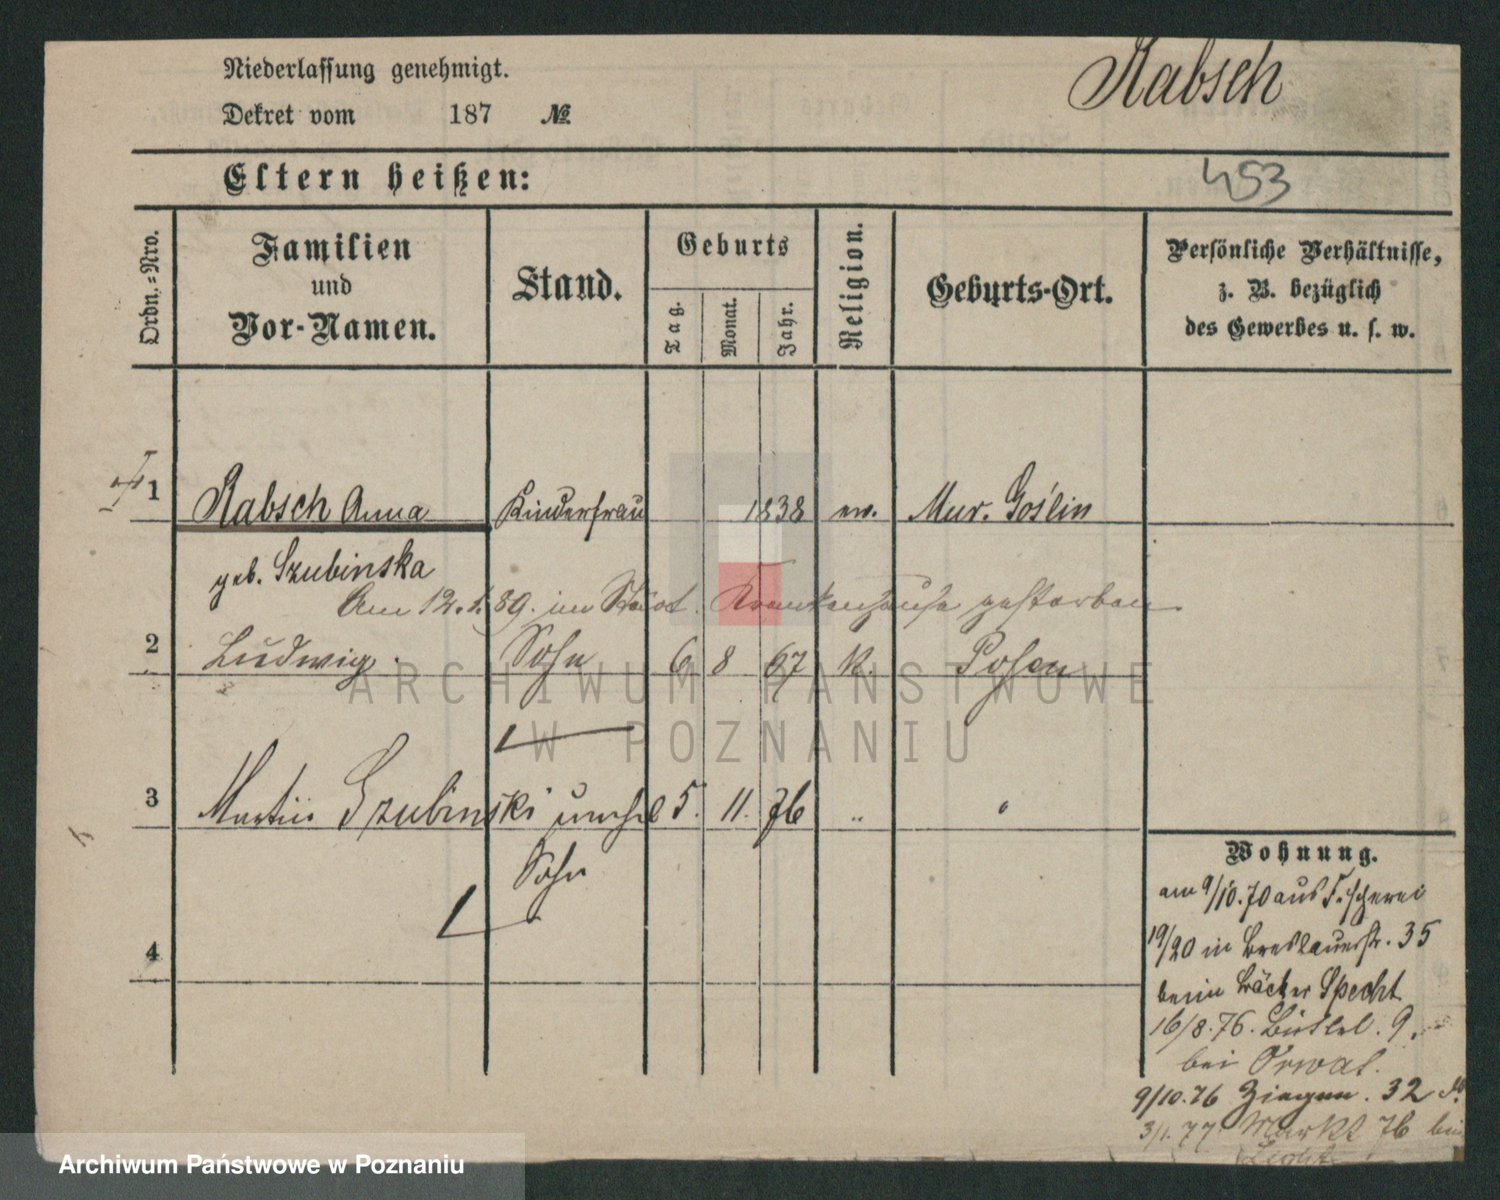 Niederlassung genehmigt.
Rabsch
Dekret vom 187 №
Eltern heißen:
453
Ordn.-Nro.
Familien
und
Vor-Namen.
Stand.
Geburts
Tag.
Monat.
Jahr.
Religion.
Geburts-Ort.
Persönliche Verhältnisse,
z. B. bezüglich
des Gewerbes u. s. w.
1 Rabsch Anna Kinderfrau 1838 ev. Mur. Goślin
geb. Szubinska
Am 12.1.89. im Städt. Krankenhause gestorben
2 Ludwig. Sohn 6 8 67 k. Posen
3 Martin Szubinski unehel 5. 11. 76 "
Sohn
4
Wohnung.
am 9/10.70 aus Fischerei
19/20 in Breslauerstr. 35
beim Bäcker Specht
16/8.76. Büttel. 9.
bei
9/10.76 Ziegen. 32
3/1.77 Markt 76 bei
ARCHIWUM PAŃSTWOWE
W POZNANIU
Archiwum Państwowe w Poznaniu